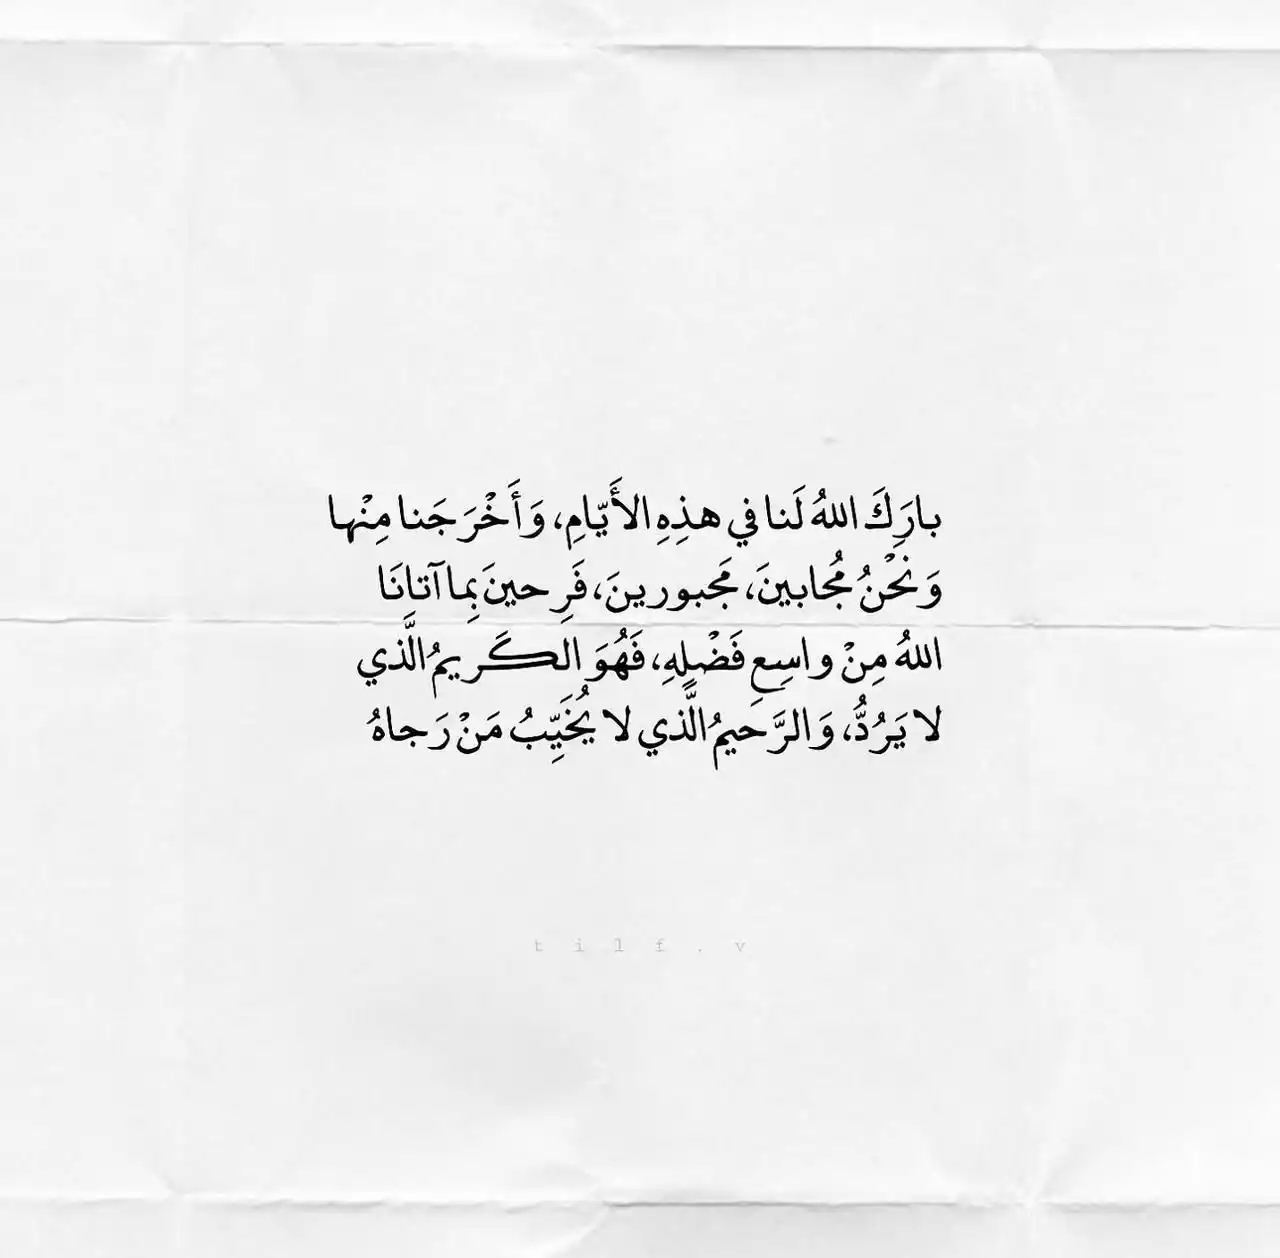 بارَكَ اللهُ لَنا في هذِهِ الأَيّامِ، وَأَخْرَجَنا مِنْها
وَنَحْنُ مُجابينَ، مَجبورينَ، فَرِحينَ بِما آتانَا
اللهُ مِنْ واسِعِ فَضْلِهِ، فَهُوَ الكَريمُ الَّذي
لا يَرُدُّ، وَالرَّحيمُ الَّذي لا يُخَيِّبُ مَنْ رَجاهُ
t i l f . v